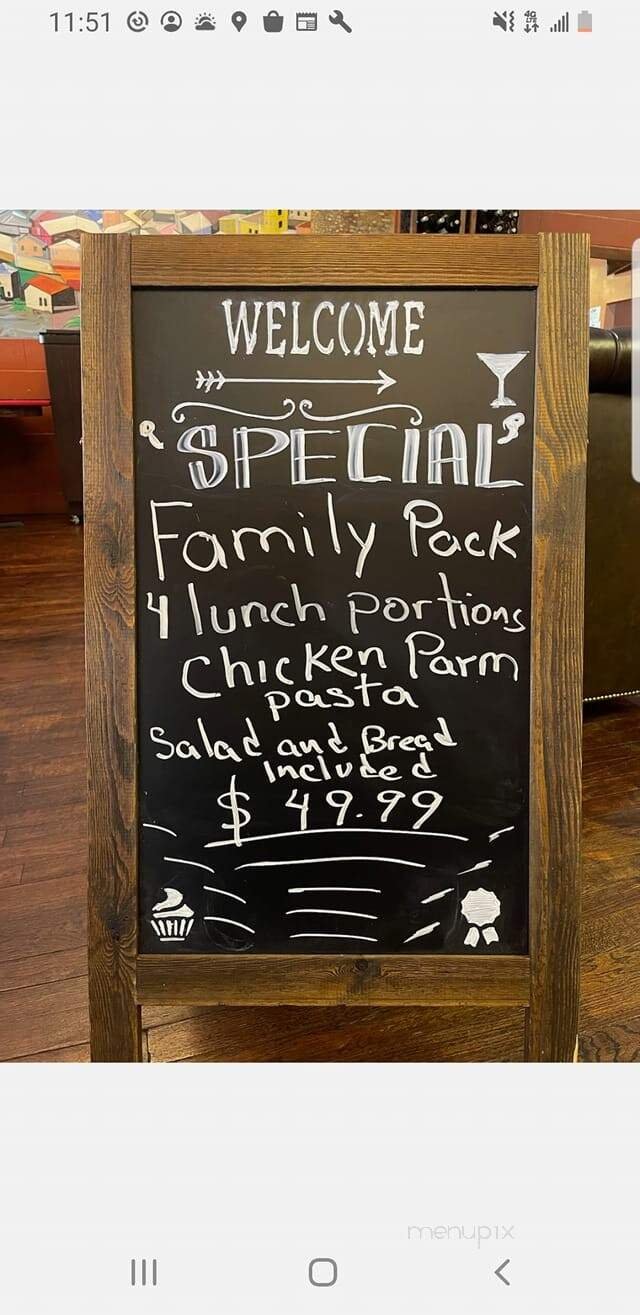 11:51
4G
LTE
WELCOME
SPECIAL
Family Pack
4 lunch portions
Chicken Parm
pasta
Salad and Bread
Included
$ 49.99
menupix